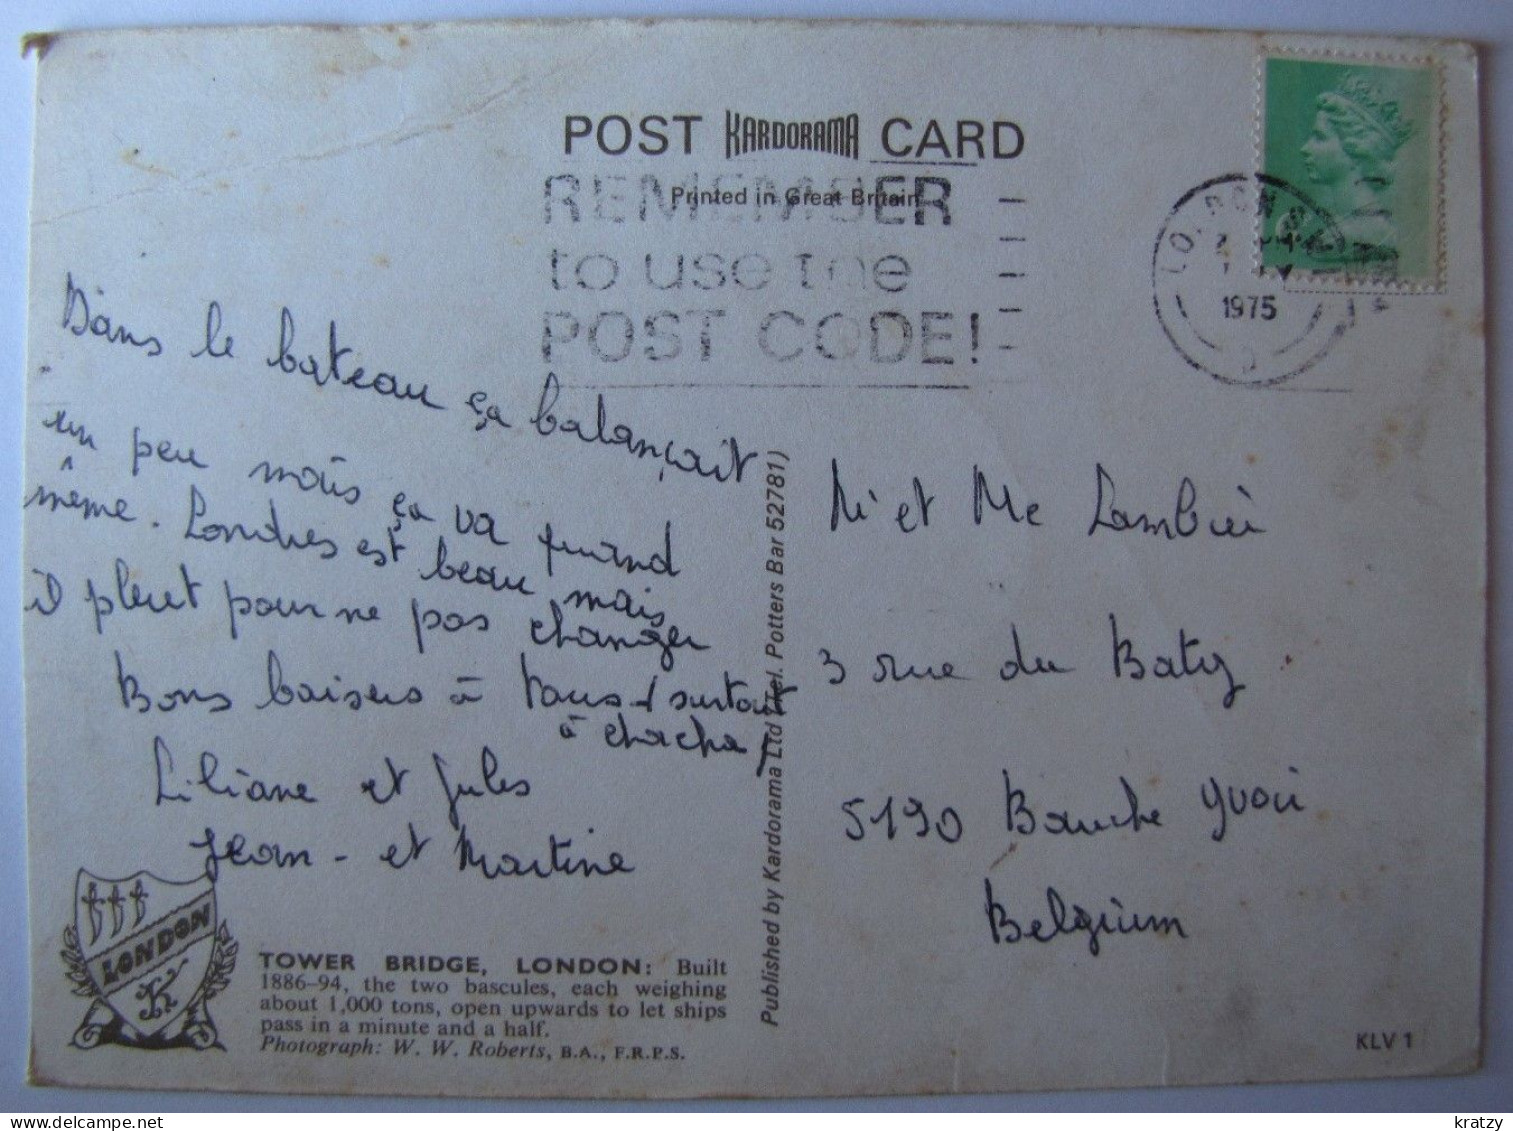 POST KARDORAMA CARD
Printed in Great Britain
REMEMBER
to use the
POST CODE!
LONDON S.W.1
1975
Dans le bateau ça balançait
un peu mais ça va quand
même. Londres est beau mais
il pleut pour ne pas changer
Bons baisers à tous (surtout
à chacha)
Liliane et Jules
Jean - et Martine
Mr et Me Lambiei
3 rue du Baty
5190 Bauche Yvoir
Belgium
Published by Kardorama Ltd (Tel. Potters Bar 52781)
LONDON
K
TOWER BRIDGE, LONDON: Built
1886–94, the two bascules, each weighing
about 1,000 tons, open upwards to let ships
pass in a minute and a half.
Photograph: W. W. Roberts, B.A., F.R.P.S.
KLV 1
kratzy